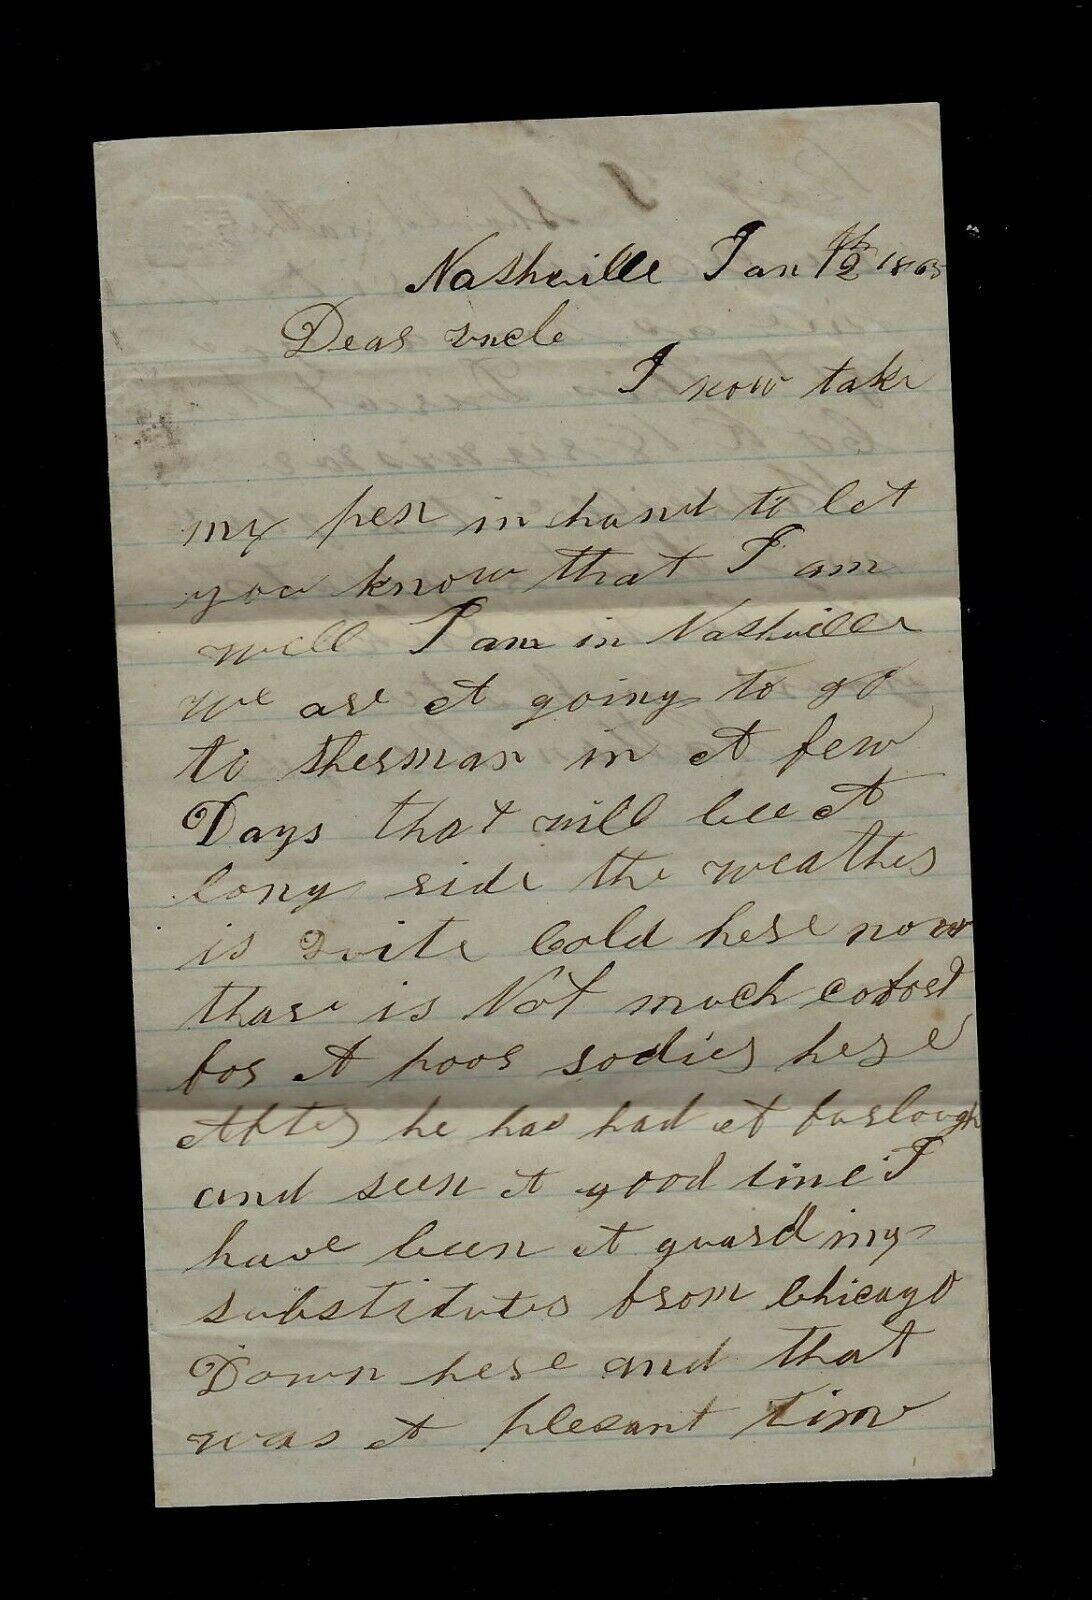 Nashville Jan 12th 1865
Dear uncle
I now take
my pen in hand to let
you know that I am
well I am in Nashville
we are A going to go
to sherman in A few
Days that will bee A
long ride the weather
is Quite Cold here now
thare is Not much
for A poor sodier here
After he has had A furlough
and seen A good time I
have been A guarding
substitutes from Chicago
Down here and that
was A plesant time